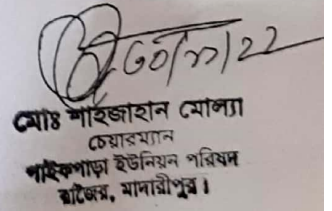 মোঃ শাহজাহান মোল্যা
চেয়ারম্যান
পাইকপাড়া ইউনিয়ন পরিষদ
রাজৈর, মাদারীপুর।